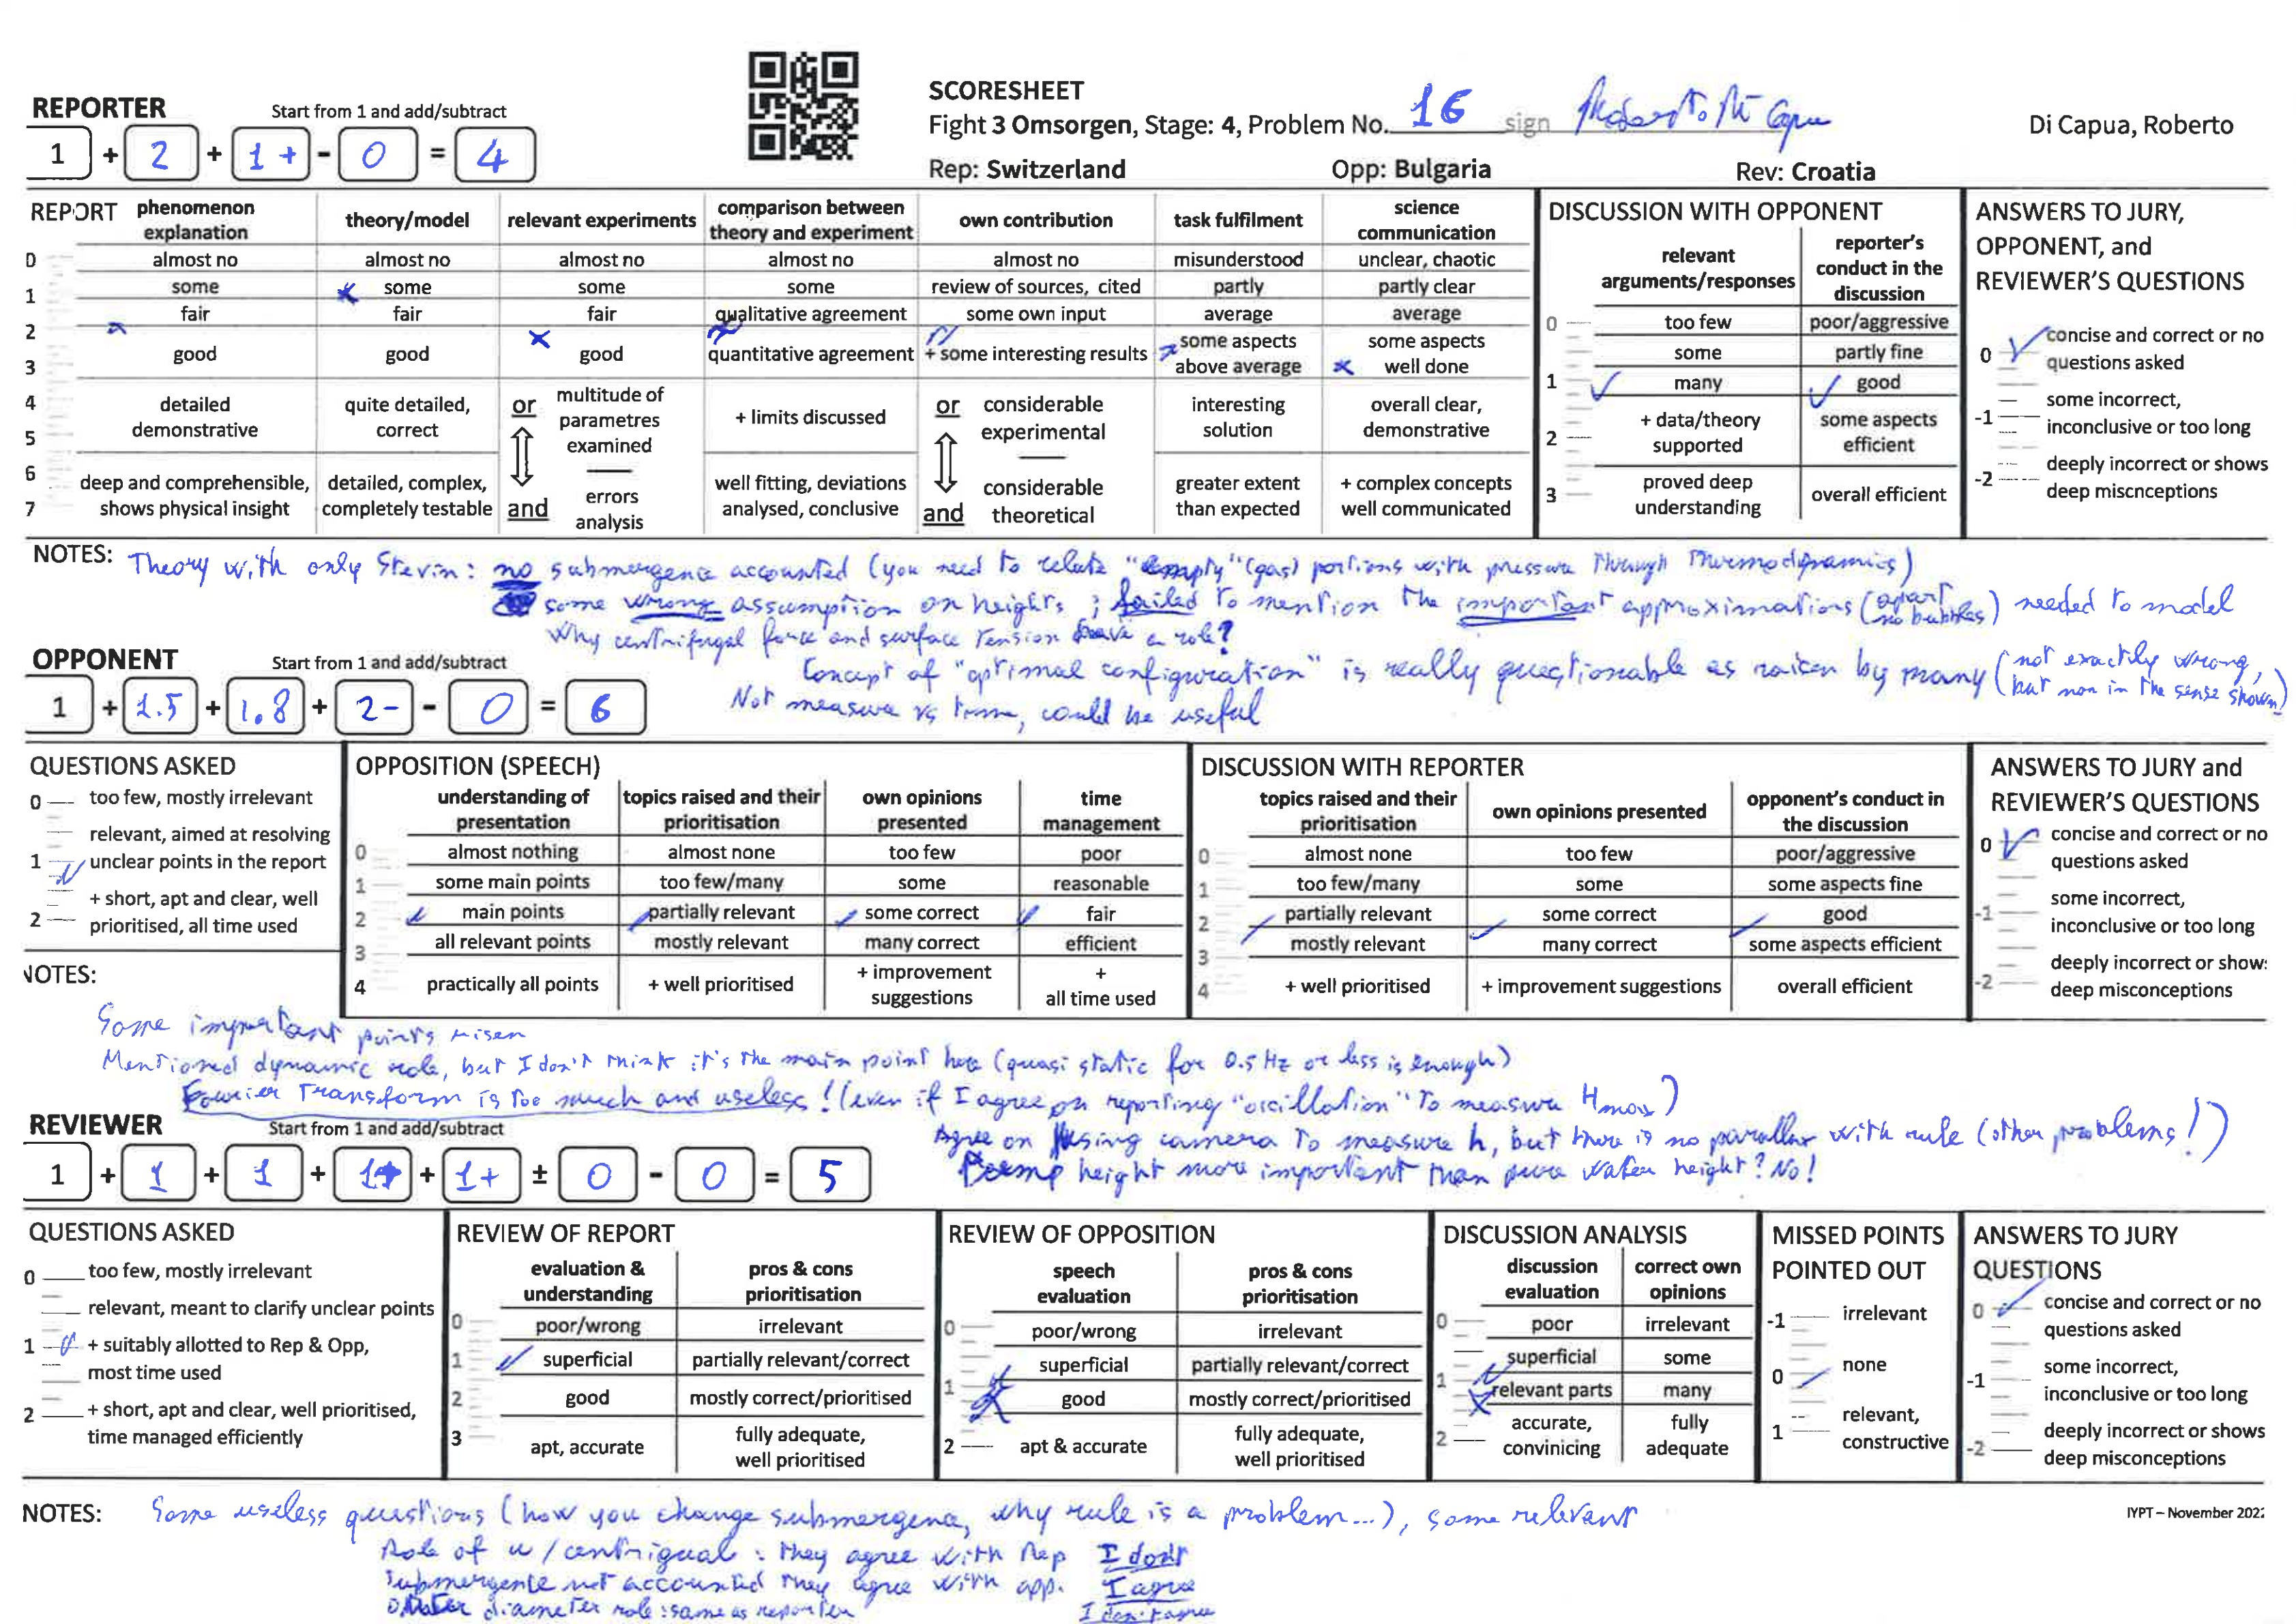 SCORESHEET
Fight 3 Omsorgen, Stage: 4, Problem No. 16 sign Roberto Di Capua
Di Capua, Roberto
Rep: Switzerland Opp: Bulgaria Rev: Croatia
REPORTER Start from 1 and add/subtract
1 + 2 + 1+ - 0 = 4
REPORT
phenomenon explanation
theory/model
relevant experiments
comparison between theory and experiment
own contribution
task fulfilment
science communication
0 almost no almost no almost no almost no almost no misunderstood unclear, chaotic
1 some some some some review of sources, cited partly partly clear
fair fair fair qualitative agreement some own input average average
2
3 good good good quantitative agreement + some interesting results some aspects above average some aspects well done
4
5 detailed demonstrative quite detailed, correct or multitude of parametres examined + limits discussed or considerable experimental interesting solution overall clear, demonstrative
6
7 deep and comprehensible, shows physical insight detailed, complex, completely testable and errors analysis well fitting, deviations analysed, conclusive and considerable theoretical greater extent than expected + complex concepts well communicated
DISCUSSION WITH OPPONENT
relevant arguments/responses reporter's conduct in the discussion
0 too few poor/aggressive
some partly fine
1 many good
2 + data/theory supported some aspects efficient
3 proved deep understanding overall efficient
ANSWERS TO JURY, OPPONENT, and REVIEWER'S QUESTIONS
0 concise and correct or no questions asked
-1 some incorrect, inconclusive or too long
-2 deeply incorrect or shows deep miscnceptions
NOTES: Theory with only Stevin: no submergence accounted (you need to relate "empty" (gas) portions with pressure through Thermodynamics)
some wrong assumption on heights; failed to mention the important approximations (apart no bubbles) needed to model
Why centrifugal force and surface tension have a role?
Concept of "optimal configuration" is really questionable as raisen by many (not exactly wrong, but non in the sense shown)
Not measure vs time, could be useful
OPPONENT Start from 1 and add/subtract
1 + 1.5 + 1.8 + 2- - 0 = 6
QUESTIONS ASKED
0 too few, mostly irrelevant
relevant, aimed at resolving
1 unclear points in the report
+ short, apt and clear, well
2 prioritised, all time used
OPPOSITION (SPEECH)
understanding of presentation topics raised and their prioritisation own opinions presented time management
0 almost nothing almost none too few poor
1 some main points too few/many some reasonable
2 main points partially relevant some correct fair
3 all relevant points mostly relevant many correct efficient
4 practically all points + well prioritised + improvement suggestions + all time used
DISCUSSION WITH REPORTER
topics raised and their prioritisation own opinions presented opponent's conduct in the discussion
0 almost none too few poor/aggressive
1 too few/many some some aspects fine
2 partially relevant some correct good
3 mostly relevant many correct some aspects efficient
4 + well prioritised + improvement suggestions overall efficient
ANSWERS TO JURY and REVIEWER'S QUESTIONS
0 concise and correct or no questions asked
-1 some incorrect, inconclusive or too long
-2 deeply incorrect or show: deep misconceptions
NOTES:
Some important points risen
Mentioned dynamic role, but I don't think it's the main point here (quasi static for 0.5 Hz or less is enough)
Fourier Transform is too much and useless! (even if I agree on reporting "oscillation" to measure Hmax)
Agree on using camera to measure h, but there is no parallax with rule (other problems!)
height more important than pure water height? No!
REVIEWER Start from 1 and add/subtract
1 + 1 + 1 + 1+ + 1+ ± 0 - 0 = 5
QUESTIONS ASKED
0 too few, mostly irrelevant
relevant, meant to clarify unclear points
1 + suitably allotted to Rep & Opp,
most time used
2 + short, apt and clear, well prioritised,
time managed efficiently
REVIEW OF REPORT
evaluation & understanding pros & cons prioritisation
0 poor/wrong irrelevant
1 superficial partially relevant/correct
2 good mostly correct/prioritised
3 apt, accurate fully adequate, well prioritised
REVIEW OF OPPOSITION
speech evaluation pros & cons prioritisation
0 poor/wrong irrelevant
superficial partially relevant/correct
1 good mostly correct/prioritised
2 apt & accurate fully adequate, well prioritised
DISCUSSION ANALYSIS
discussion evaluation correct own opinions
0 poor irrelevant
superficial some
1 relevant parts many
2 accurate, convinicing fully adequate
MISSED POINTS POINTED OUT
-1 irrelevant
0 none
1 relevant, constructive
ANSWERS TO JURY QUESTIONS
0 concise and correct or no questions asked
-1 some incorrect, inconclusive or too long
-2 deeply incorrect or shows deep misconceptions
NOTES: Some useless questions (how you change submergence, why rule is a problem...), some relevant
Role of w/centrigual: they agree with Rep I don't
Submergente not accounted they agree with opp. I agree
diameter role: same as reporter I don't agree
IYPT – November 202